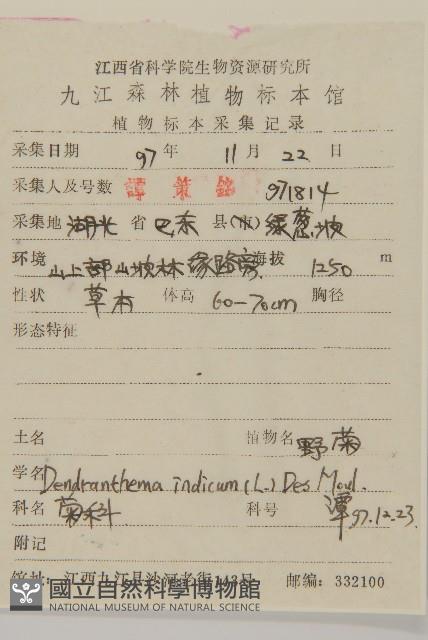 江西省科学院生物资源研究所
九江森林植物标本馆
植物标本采集记录
采集日期 97 年 11 月 22 日
采集人及号数 譚策銘 971814
采集地 湖北 省 巴东 县(市) 绿葱坡
环境 山上部山坡林缘路旁 海拔 1250 m
性状 草本 体高 60-70cm 胸径
形态特征
土名 植物名 野菊
学名 Dendranthema indicum (L.) Des Moul.
科名 菊科 科号 谭 97.12.23.
附记
馆址: 江西九江县沙河老街143号 邮编: 332100
國立自然科學博物館
NATIONAL MUSEUM OF NATURAL SCIENCE